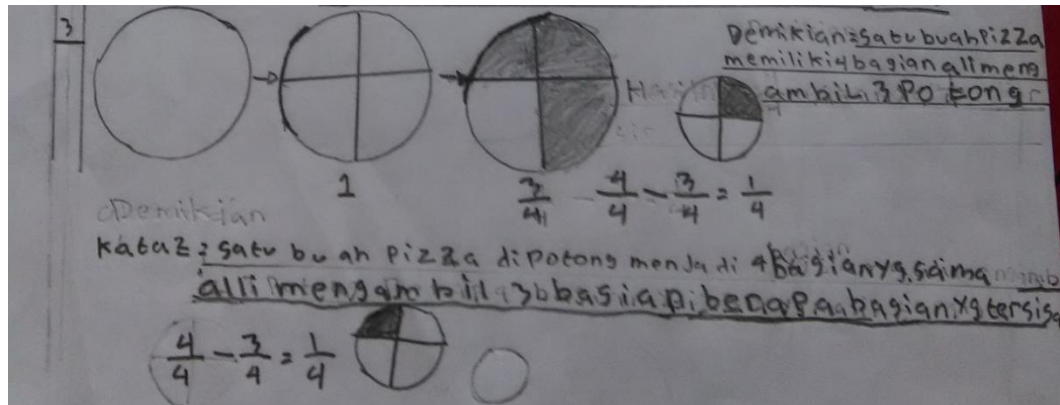 3
Demikian: satu buah Pizza
memiliki 4 bagian alli meng
ambil 3 Potong
1
3/4 4/4 - 3/4 = 1/4
Demikian
Kataz: satu buah Pizza di potong menjadi 4 bagian yg sama
alli mengambil 3 bbagian
4/4 - 3/4 = 1/4